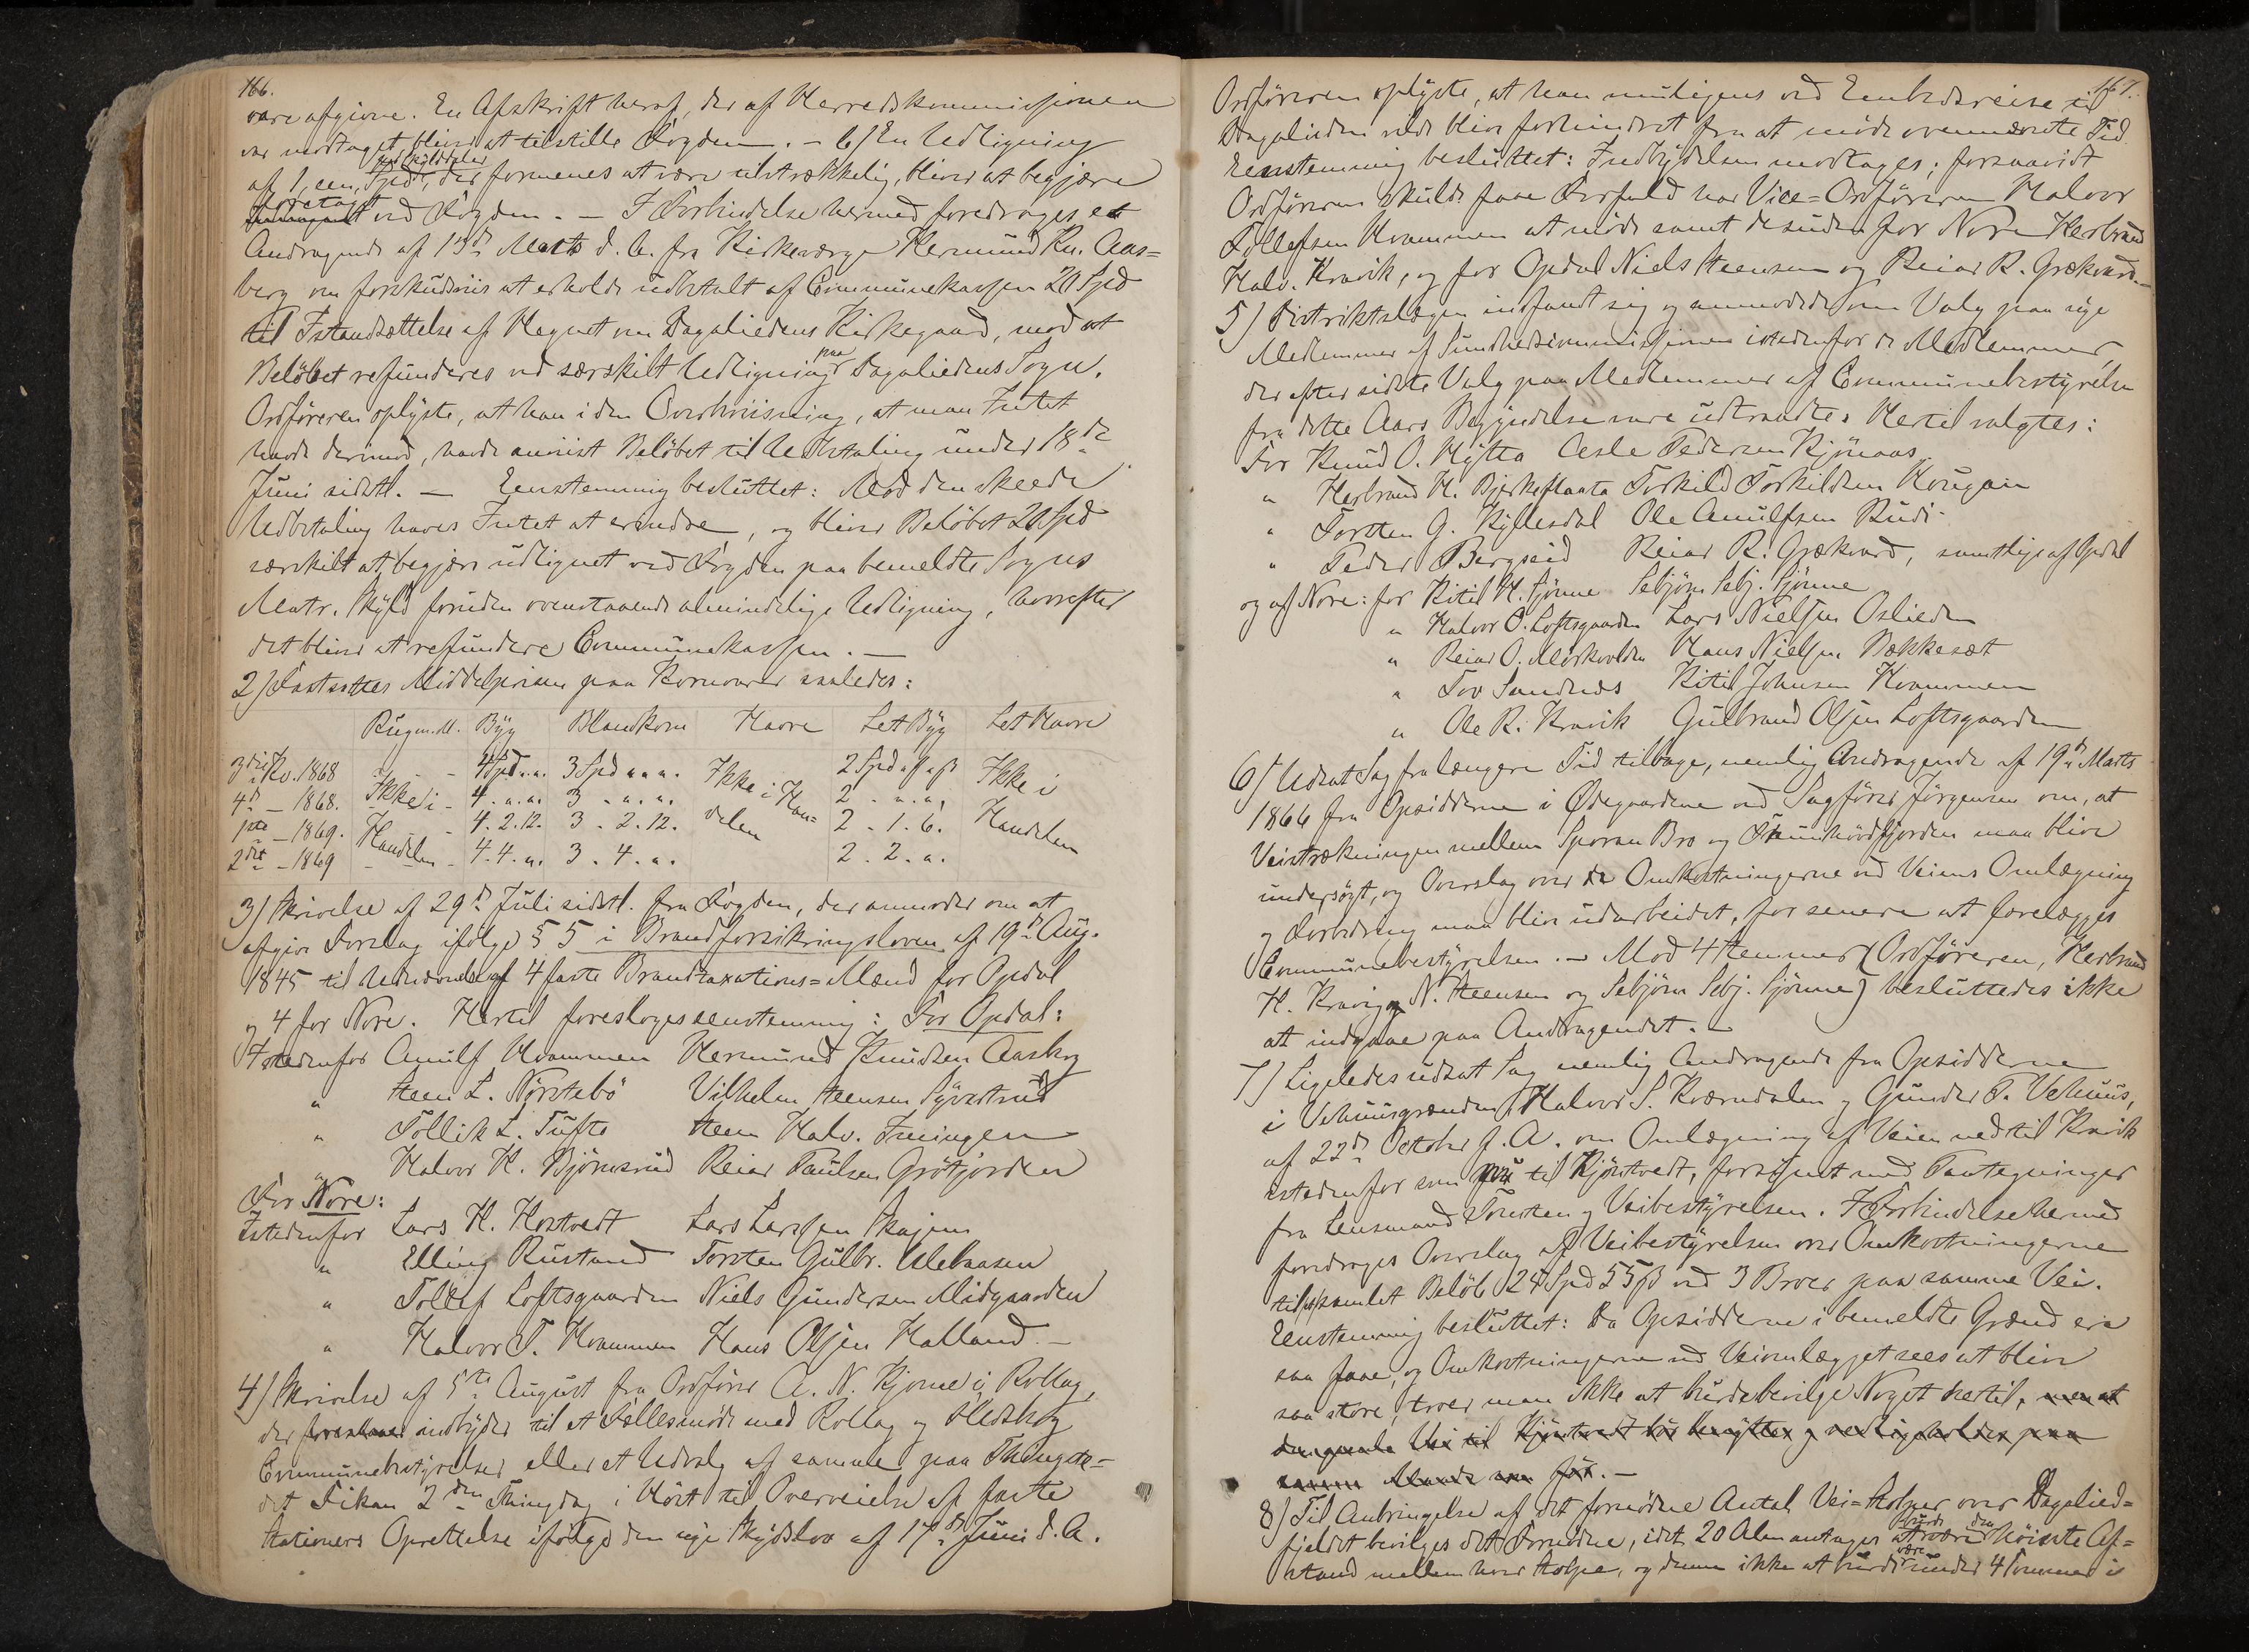 166.
være afgivne. En Afskrift heraf, der af Herredskommissjonen
var modtaget, bliver at tilstille Fogden. – 6/ En Udligning
pr. Skylddaler
af 1, een, Spd, der formenes at være tilstrækkelig, bliver at begjære
foretaget
ved Fogden. – I Forbindelse hermed foredroges et
Andragende af 13d Marts d. A. fra Kirkeværge Hermund Kn. Aas=
berg om forskudsviis at erholde udbetalt af Communekassen 20 Spd
til Istandsættelse af Hegnet om Dagaliedens Kirkegaard, mod at
Beløbet refunderes ved særskilt Udligning paa Dagaliedens Sogn.
Ordføreren oplyste, at han i den Overbeviisning, at man Intet
havde derimod, havde anviist Beløbet til Udbetaling under 18de
Juni sidstl. – Eenstemmig besluttet: Mod den skeede
Udbetaling haves Intet at erindre, og bliver Beløbet 20 Spd
særskilt at begjære udlignet ved Fogden paa bemeldte Sogns
Matr. Skyld foruden ovenstaaende almindelige Udligning, hvorefter
det bliver at refundere Communekassen. –
2) Fastsattes Middelprisen paa Kornvarer saaledes:
Rug m.M. Byg Blandkorn Havre Let Byg Let Havre
3die Kv. 1868 - 4 Spd " ". 3 Spd " " ". Ikke i Han= 2 Spd " ß Ikke i
4d – 1868. Ikke i - 4. ". ". 3 . ". ". delen 2 . ". ".
1ste – 1869. Handelen - 4. 2. 12. 3 . 2. 12. 2 . 1. 6. Handelen
2det – 1869 - 4. 4. ". 3 . 4. ". 2 . 2. ".
3) Skrivelse af 29d Juli sidstl. fra Fogden, der anmoder om at
afgive Forslag ifølge § 5 i Brandforsikringsloven af 19d Aug.
1845 til Udnævnelse af 4 faste Brandtaxations=Mænd for Opdal
og 4 for Nore. Hertil foresloges eenstemmig: For Opdal:
Istedenfor Anulf Hvammen Hermund Knudsen Aasberg
" Steen L. Nørstebö Vilhelm Steensen Syverstrud
" Tollik L. Tufte Steen Halv. Inningen
" Halvor H. Björnerud Reiar Paulsen Grötjorden
For Nore:
Istedenfor Lars H. Hostvedt Lars Larssen Skajem
" Elling Rustand Torsten Gulbr. Uleberaasen
" Tollef Loftsgaarden Niels Gundersen Midgaarden
" Halvor T. Hvammen Hans Olsen Halland –
4) Skrivelse af 5te August fra Ordfører A. N. Kjome i Rollag,
der foreslaaer indbyder til et Fællesmøde med Rollag og Flesberg
Communebestyrelser eller et Udvalg af samme paa Thingste=
det Fikan 2den Thingdag i Høst til Overveielse af faste
Stationers Oprettelse ifølge den nye Skydslov af 17d Juni d. A.
167.
Ordføreren oplyste, at han muligens ved Embedsreise til
Dagalieden vilde blive forhindret fra at møde ovennævnte Tid.
Eenstemmig besluttet: Indbydelsen modtages; forsaavidt
Ordføreren skulde faae Forfald har Vice=Ordføreren Halvor
Tollefsen Hvammen at møde samt desuden for Nore Herbrand
Halv. Kravik, og for Opdal Niels Steensen og Reiar R. Grækvard. –
5) Distriktslægen indfandt sig og anmodede om Valg paa nye
Medlemmer af Sundhedscommissionen istedenfor de Medlemmer,
der efter sidste Valg paa Medlemmer af Communebestyrelsen
fra dette Aars Begyndelse vare udtraadte. Hertil valgtes:
For Knud O. Hytta Asle Pedersen Kjönaas
" Herbrand H. Bjerkeflaata Torkild Torkildsen Hougan
" Torsten G. Kyllesdal Ole Anulfsen Rudi
" Peder Bergseid Reiar R. Grækvard, samtlige af Opdal
og af Nore: for Kittil H. Sjönne Sebjörn Sebj. Sjönne
" Halvor O. Loftsgaarden Lars Nielsen Oslieden
" Reiar O. Mörkvolden Hans Nielsen Bækkesæt
" Tov Sandnes Kittil Johnsen Hvammen
" Ole R. Kravik Gulbrand Olsen Loftsgaarden
6) Udsat Sag fra længere Tid tilbage, nemlig Andragende af 19d Marts
1866 fra Opsidderne i Ødegaardene ved Sagfører Jörgensen om, at
Veistrækningen mellem Sporan Bro og Thunhövdfjorden maa blive
undersøgt, og Overslag over de Omkostningerne ved Veiens Omlægning
og Forbedring maa blive udarbeidet, for senere at forelægges
Communebestyrelsen. – Mod 4 Stemmer (Ordføreren, Herbrand
H. Kravig, N. Steensen og Sebjörn Sebj. Sjönne) besluttedes ikke
at indgaae paa Andragendet. –
7) Ligeledes udsat Sag nemlig Andragende fra Opsidderne
i Vehuusgrænden, Halvor S. Kværndalen og Gunder T. Vehuus,
af 22d October f. A. om Omlægning af Veien ned til Kravik
istedenfor som nu til Kjöntvedt, forsynet med Paategninger
fra Lensmand Toresten og Veibestyrelsen. I Forbindelse hermed
foredroges Overslag af Veibestyrelsen over Omkostningerne
til samlet Beløb 24 Spd 55 ß ved 3 Broer paa samme Vei.
Eenstemmig besluttet: Da Opsidderne i bemeldte Grænd ere
saa faae, og Omkostningerne ved Veiomlægget sees at blive
saa store, troer man ikke at burde bevilge Noget hertil, men at
den gamle Vei til Kjöntvedt bör benyttes og vedligeholdes paa
samme Maade som för. –
8) Til Anbringelse af det fornødne Antal Vei=Stolper over Dagalied=
fjeldet bevilges det Fornødne, idet 20 Alen antages at burde være den høieste Af=
stand mellem hver Stolpe, og denne ikke at burde være under 4 Tommer i